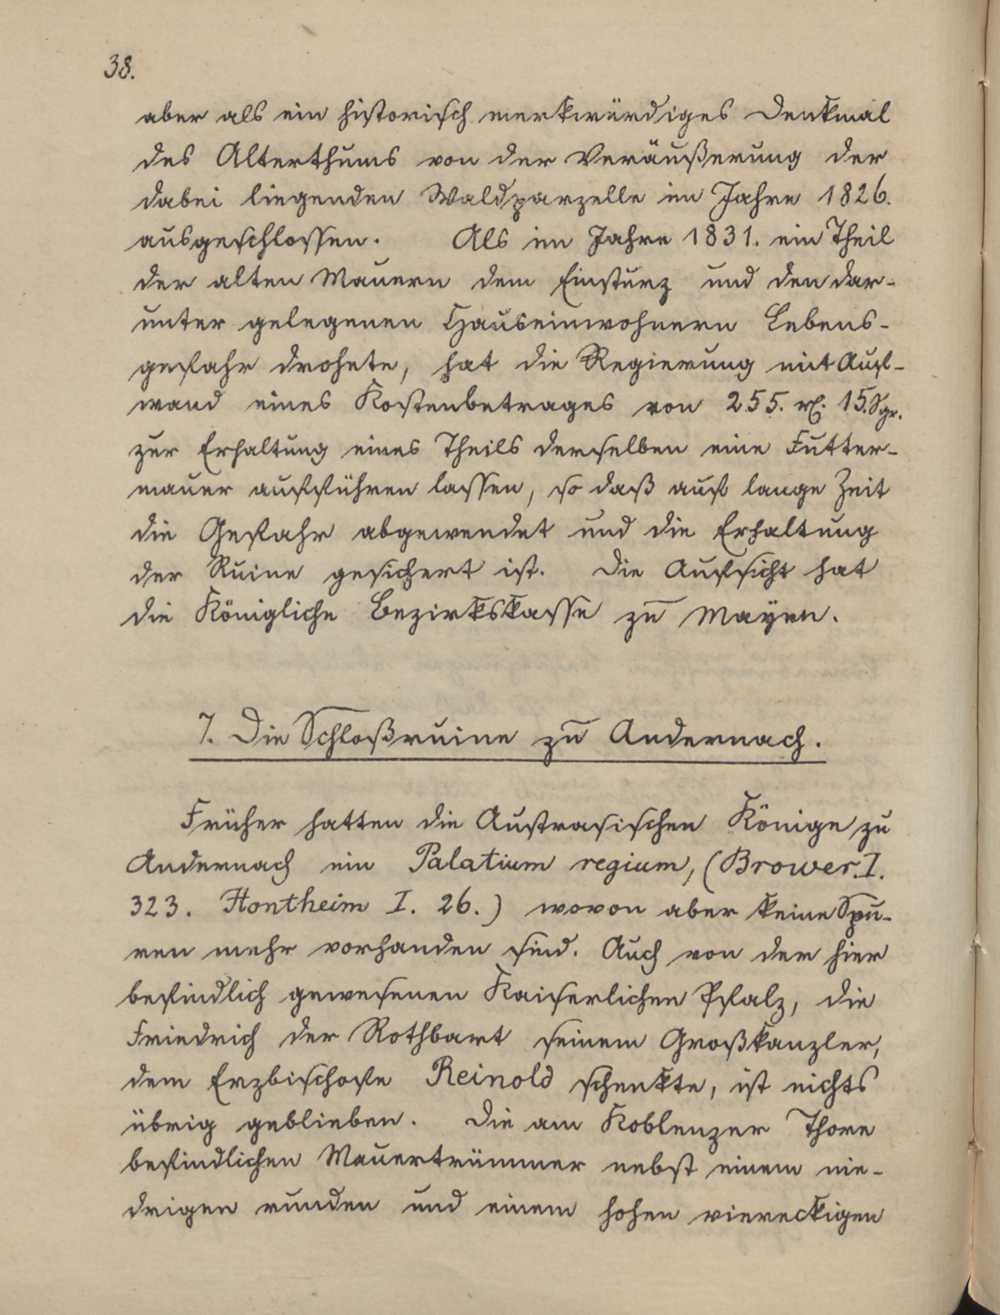 38.
aber als ein historisch merkwürdiges Denkmal
des Alterthums von der Veräußerung der
dabei liegenden Waldparzelle im Jahre 1826.
ausgeschlossen. Als im Jahre 1831. ein Theil
der alten Mauern dem Einsturz und den dar-
unter gelegenen Hauseinwohnern Lebens-
gefahr drohete, hat die Regierung mit Auf-
wand eines Kostenbetrages von 255. rl. 15. Sgr.
zur Erhaltung eines Theils derselben eine Futter-
mauer aufführen lassen, so daß auf lange Zeit
die Gefahr abgewendet und die Erhaltung
der Ruine gesichert ist. Die Aufsicht hat
die Königliche Bezirkskasse zu Mayen.
7. Die Schloßruine zu Andernach.
Früher hatten die Austrasischen Könige zu
Andernach ein Palatium regium, (Brower. I.
323. Hontheim I. 26.) wovon aber keine Spu-
ren mehr vorhanden sind. Auch von der hier
befindlich gewesenen Kaiserlichen Pfalz, die
Friedrich der Rothbart seinem Großkanzler,
dem Erzbischofe Reinold schenkte, ist nichts
übrig geblieben. Die am Koblenzer Thore
befindlichen Mauertrümmer nebst einem nie-
drigen runden und einem hohen viereckigen